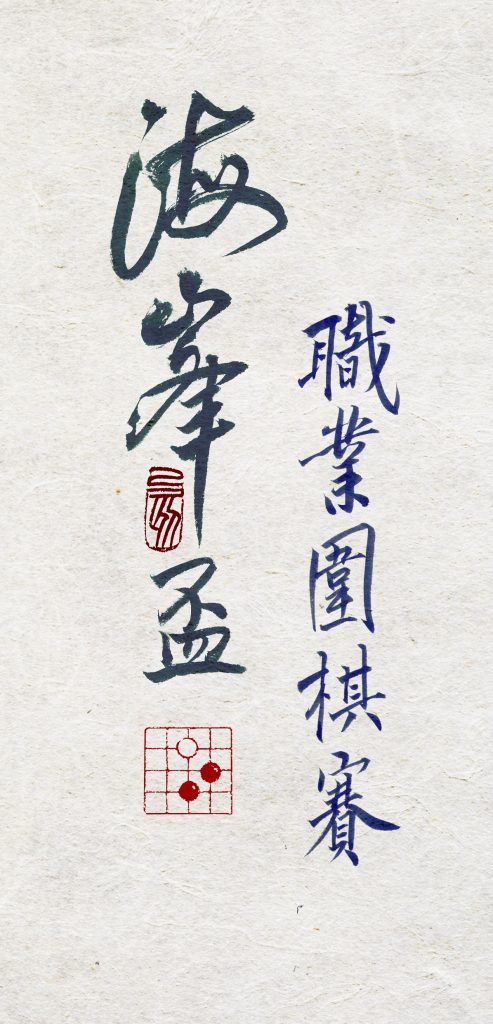 海峯盃
職業圍棋賽